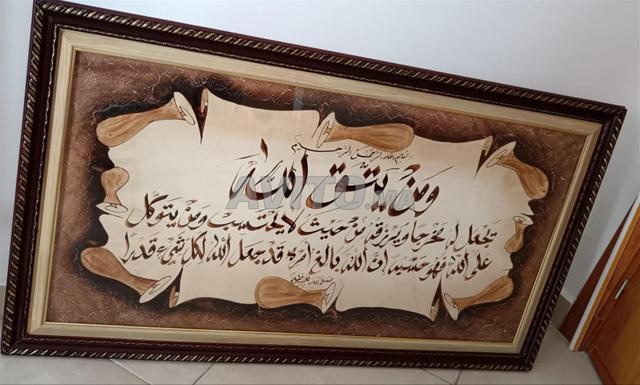 بسم الله الرحمن الرحيم
ومن يتق الله
يجعل له مخرجا ويرزقه من حيث لا يحتسب ومن يتوكل
على الله فهو حسبه ان الله بالغ امره قد جعل الله لكل شيء قدرا
صدق الله العظيم
AVITO.MA